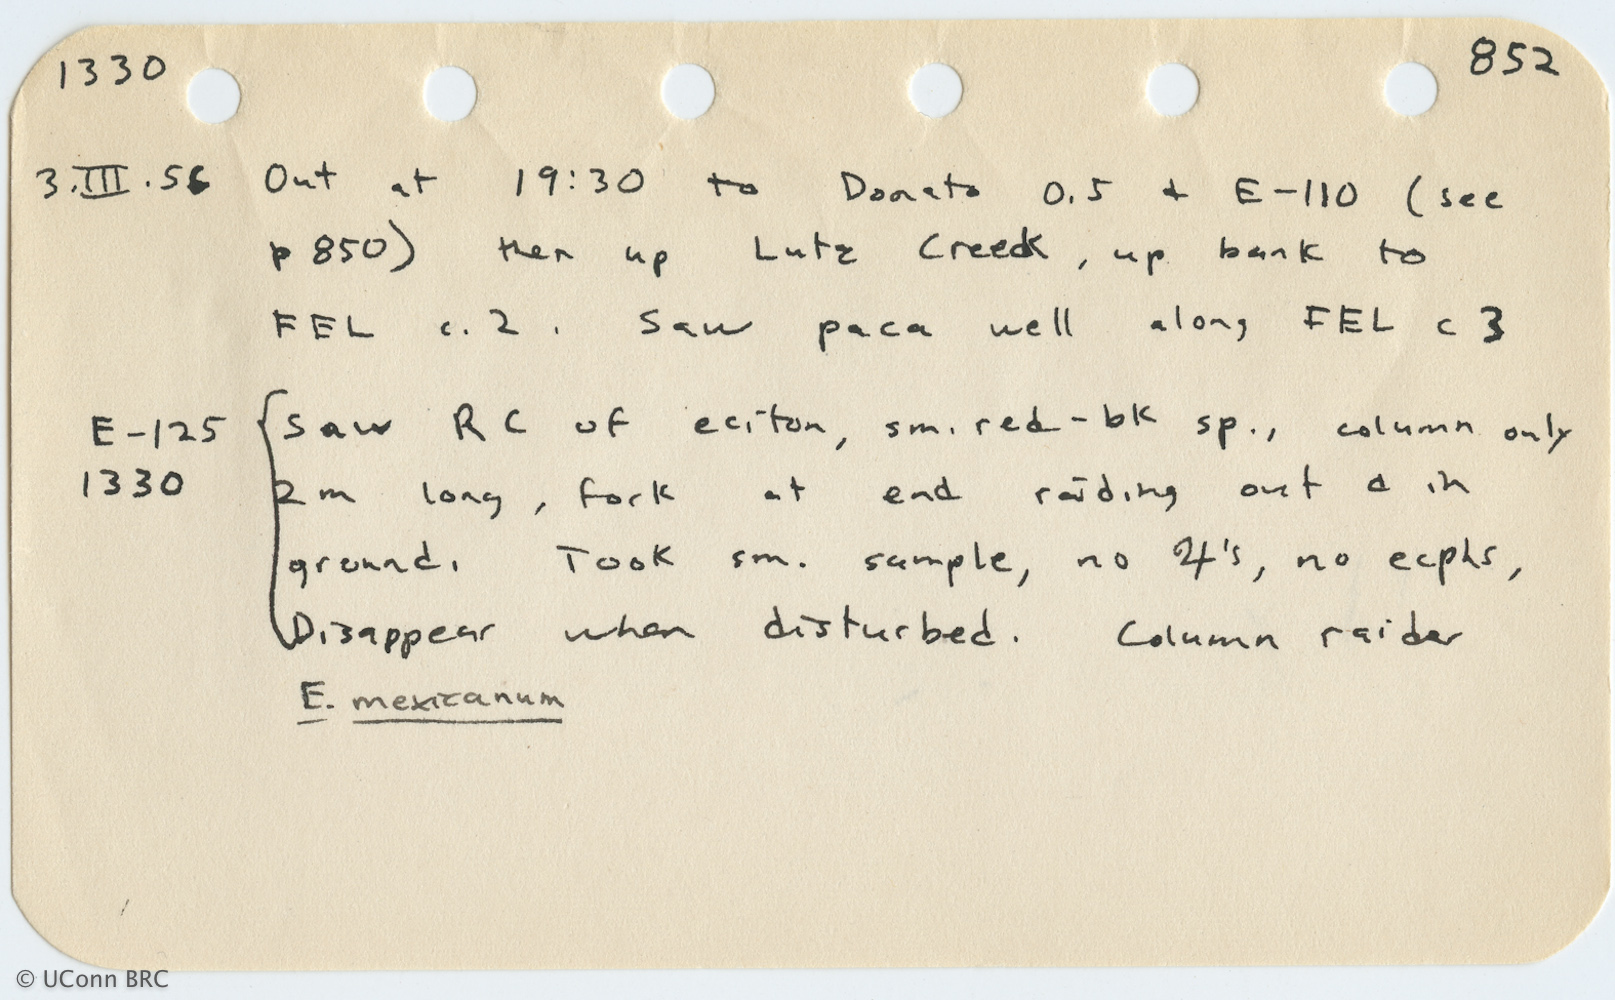 1330 852
3.III.56 Out at 19:30 to Donato 0.5 + E-110 (see
p 850) then up Lutz Creek, up bank to
FEL c. 2. Saw paca well along FEL c 3
E-125 Saw RC of eciton, sm. red-bk sp., column only
1330 2m long, fork at end raiding out & in
ground. Took sm. sample, no 24's, no ecphs,
Disappear when disturbed. Column raider
E. mexicanum
© UConn BRC